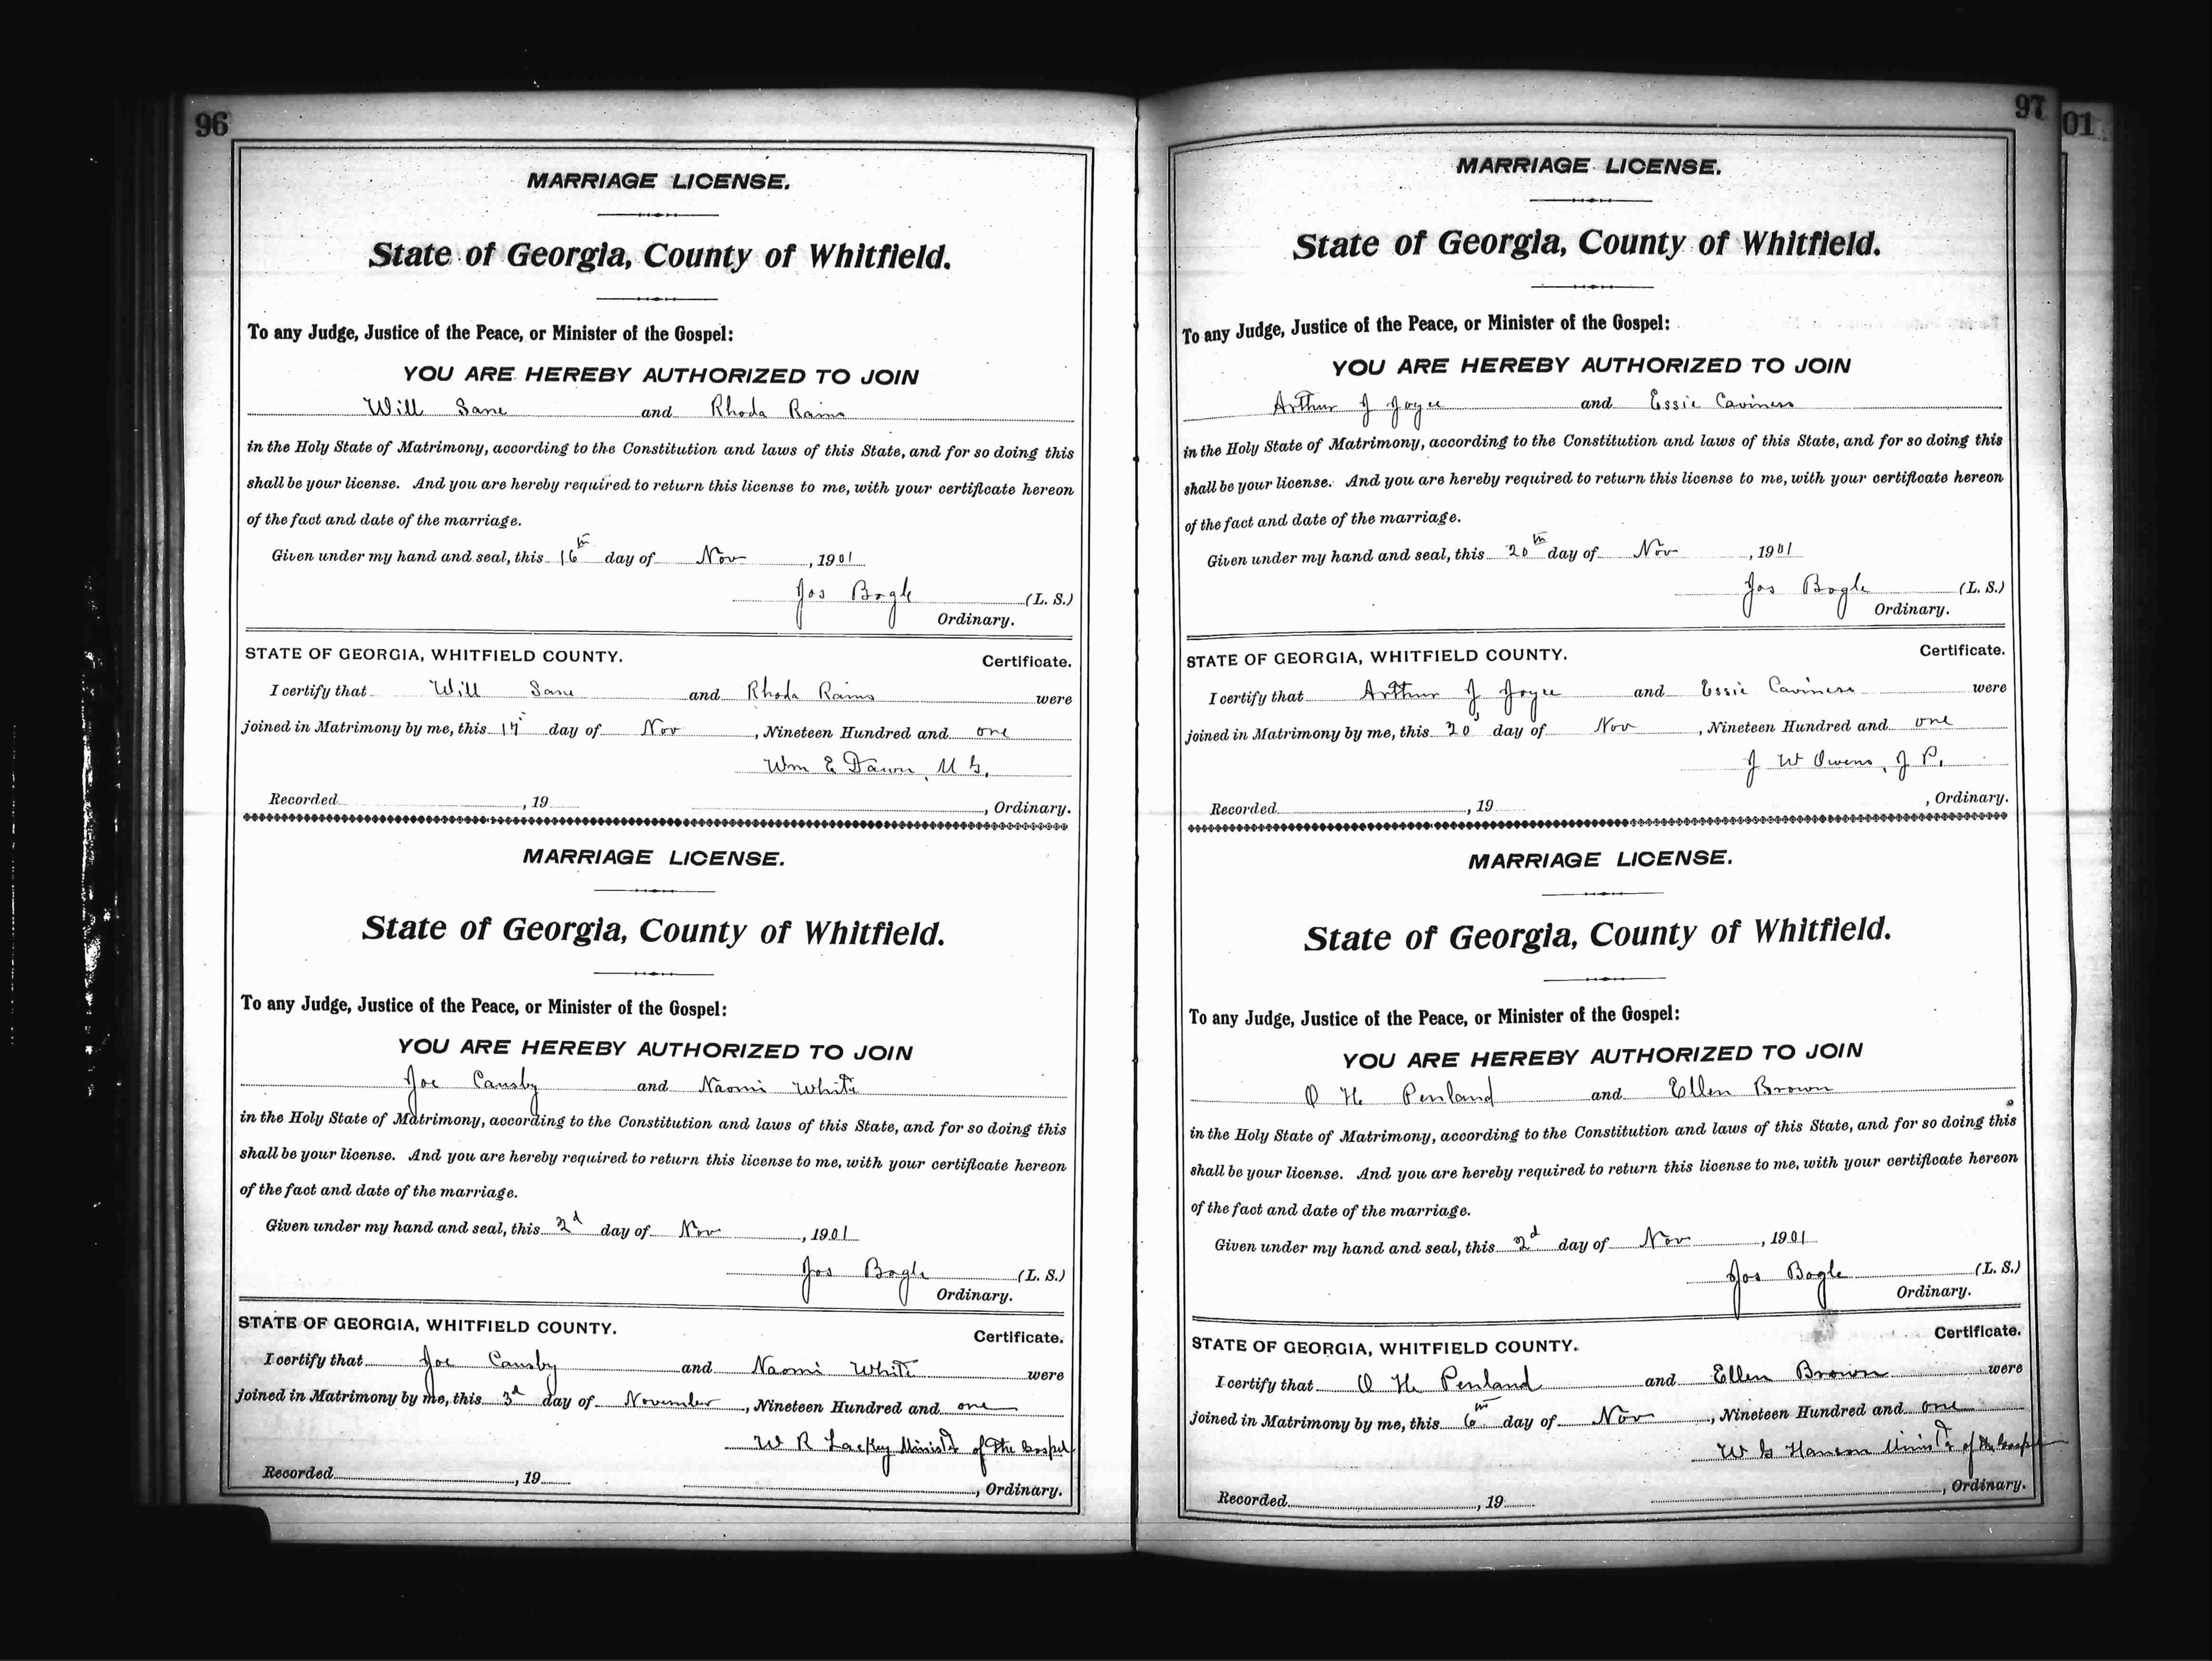 96
MARRIAGE LICENSE.
State of Georgia, County of Whitfield.
To any Judge, Justice of the Peace, or Minister of the Gospel:
YOU ARE HEREBY AUTHORIZED TO JOIN
Will Sane and Rhoda Rains
in the Holy State of Matrimony, according to the Constitution and laws of this State, and for so doing this
shall be your license. And you are hereby required to return this license to me, with your certificate hereon
of the fact and date of the marriage.
Given under my hand and seal, this 16th day of Nov, 1901
Jos Bogle (L. S.)
Ordinary.
STATE OF GEORGIA, WHITFIELD COUNTY. Certificate.
I certify that Will Sane and Rhoda Rains were
joined in Matrimony by me, this 17 day of Nov, Nineteen Hundred and one
Wm E Dawn, M G.
Recorded, 19 , Ordinary.
MARRIAGE LICENSE.
State of Georgia, County of Whitfield.
To any Judge, Justice of the Peace, or Minister of the Gospel:
YOU ARE HEREBY AUTHORIZED TO JOIN
Joe Cansby and Naomi White
in the Holy State of Matrimony, according to the Constitution and laws of this State, and for so doing this
shall be your license. And you are hereby required to return this license to me, with your certificate hereon
of the fact and date of the marriage.
Given under my hand and seal, this 2d day of Nov, 1901
Jos Bogle (L. S.)
Ordinary.
STATE OF GEORGIA, WHITFIELD COUNTY. Certificate.
I certify that Joe Cansby and Naomi White were
joined in Matrimony by me, this 3d day of November, Nineteen Hundred and one
W R Lackey Minister of the Gospel
Recorded, 19 , Ordinary.
97
01
MARRIAGE LICENSE.
State of Georgia, County of Whitfield.
To any Judge, Justice of the Peace, or Minister of the Gospel:
YOU ARE HEREBY AUTHORIZED TO JOIN
Arthur J Joyce and Essie Caviness
in the Holy State of Matrimony, according to the Constitution and laws of this State, and for so doing this
shall be your license. And you are hereby required to return this license to me, with your certificate hereon
of the fact and date of the marriage.
Given under my hand and seal, this 20th day of Nov, 1901
Jos Bogle (L. S.)
Ordinary.
STATE OF GEORGIA, WHITFIELD COUNTY. Certificate.
I certify that Arthur J Joyce and Essie Caviness were
joined in Matrimony by me, this 20 day of Nov, Nineteen Hundred and one
J W Owens, J P.
Recorded, 19 , Ordinary.
MARRIAGE LICENSE.
State of Georgia, County of Whitfield.
To any Judge, Justice of the Peace, or Minister of the Gospel:
YOU ARE HEREBY AUTHORIZED TO JOIN
O H Penland and Ellen Brown
in the Holy State of Matrimony, according to the Constitution and laws of this State, and for so doing this
shall be your license. And you are hereby required to return this license to me, with your certificate hereon
of the fact and date of the marriage.
Given under my hand and seal, this 2d day of Nov, 1901
Jos Bogle (L. S.)
Ordinary.
STATE OF GEORGIA, WHITFIELD COUNTY. Certificate.
I certify that O H Penland and Ellen Brown were
joined in Matrimony by me, this 6th day of Nov, Nineteen Hundred and one
W G Hanson Minister of the Gospel
Recorded, 19 , Ordinary.